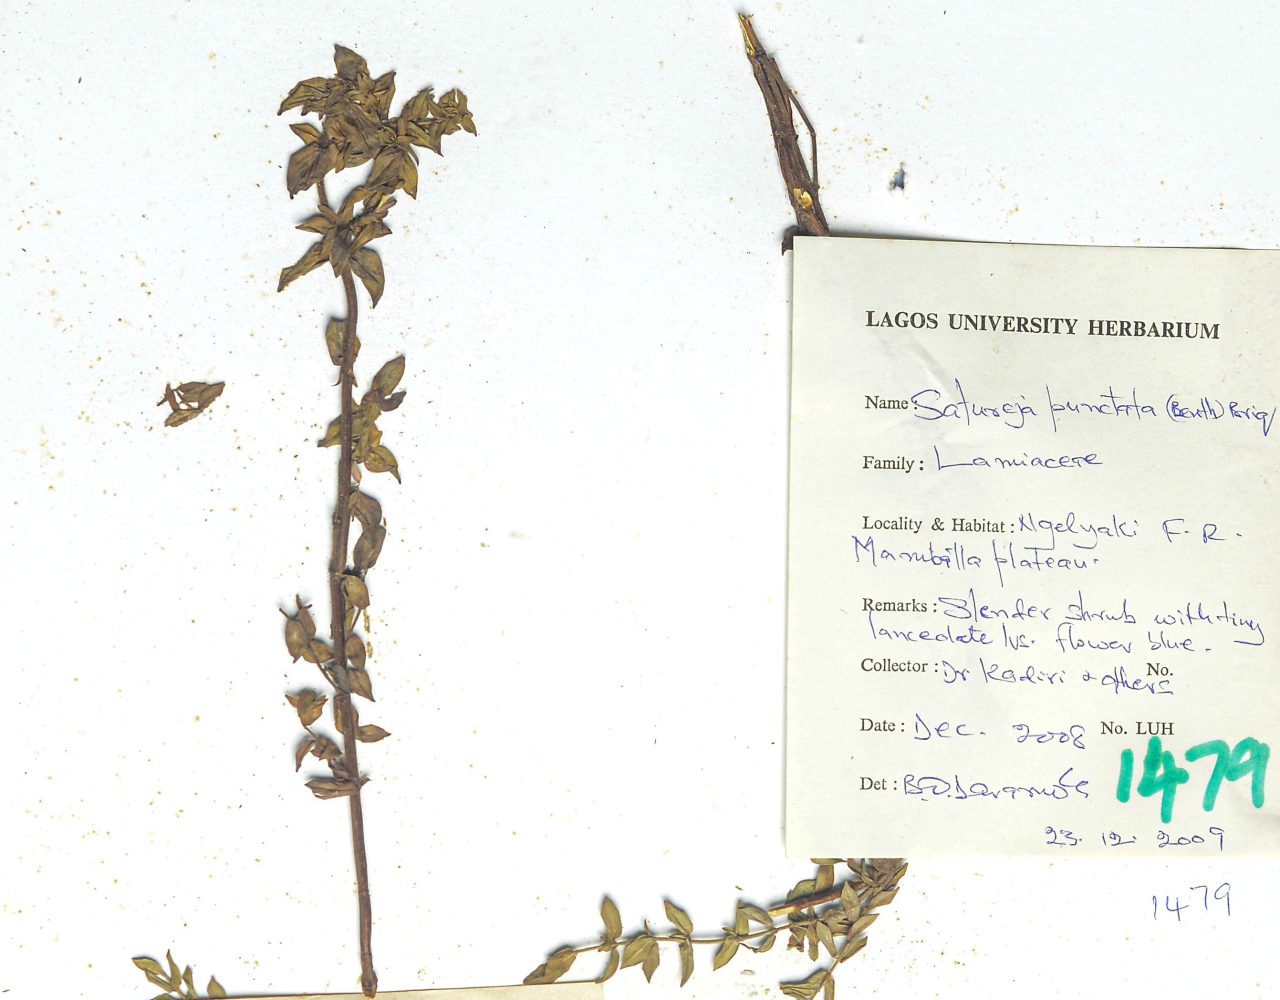 LAGOS UNIVERSITY HERBARIUM
Name: Satureja punctata (Benth) Briq
Family: Lamiaceae
Locality & Habitat: Ngelyaki F. R.
Mambilla plateau.
Remarks: Slender shrub with tiny
lanceolate lvs. flower blue.
Collector: Dr Kadiri & others No.
Date: Dec. 2008 No. LUH
1479
Det: B.O. Daramola
23. 12. 2009
1479